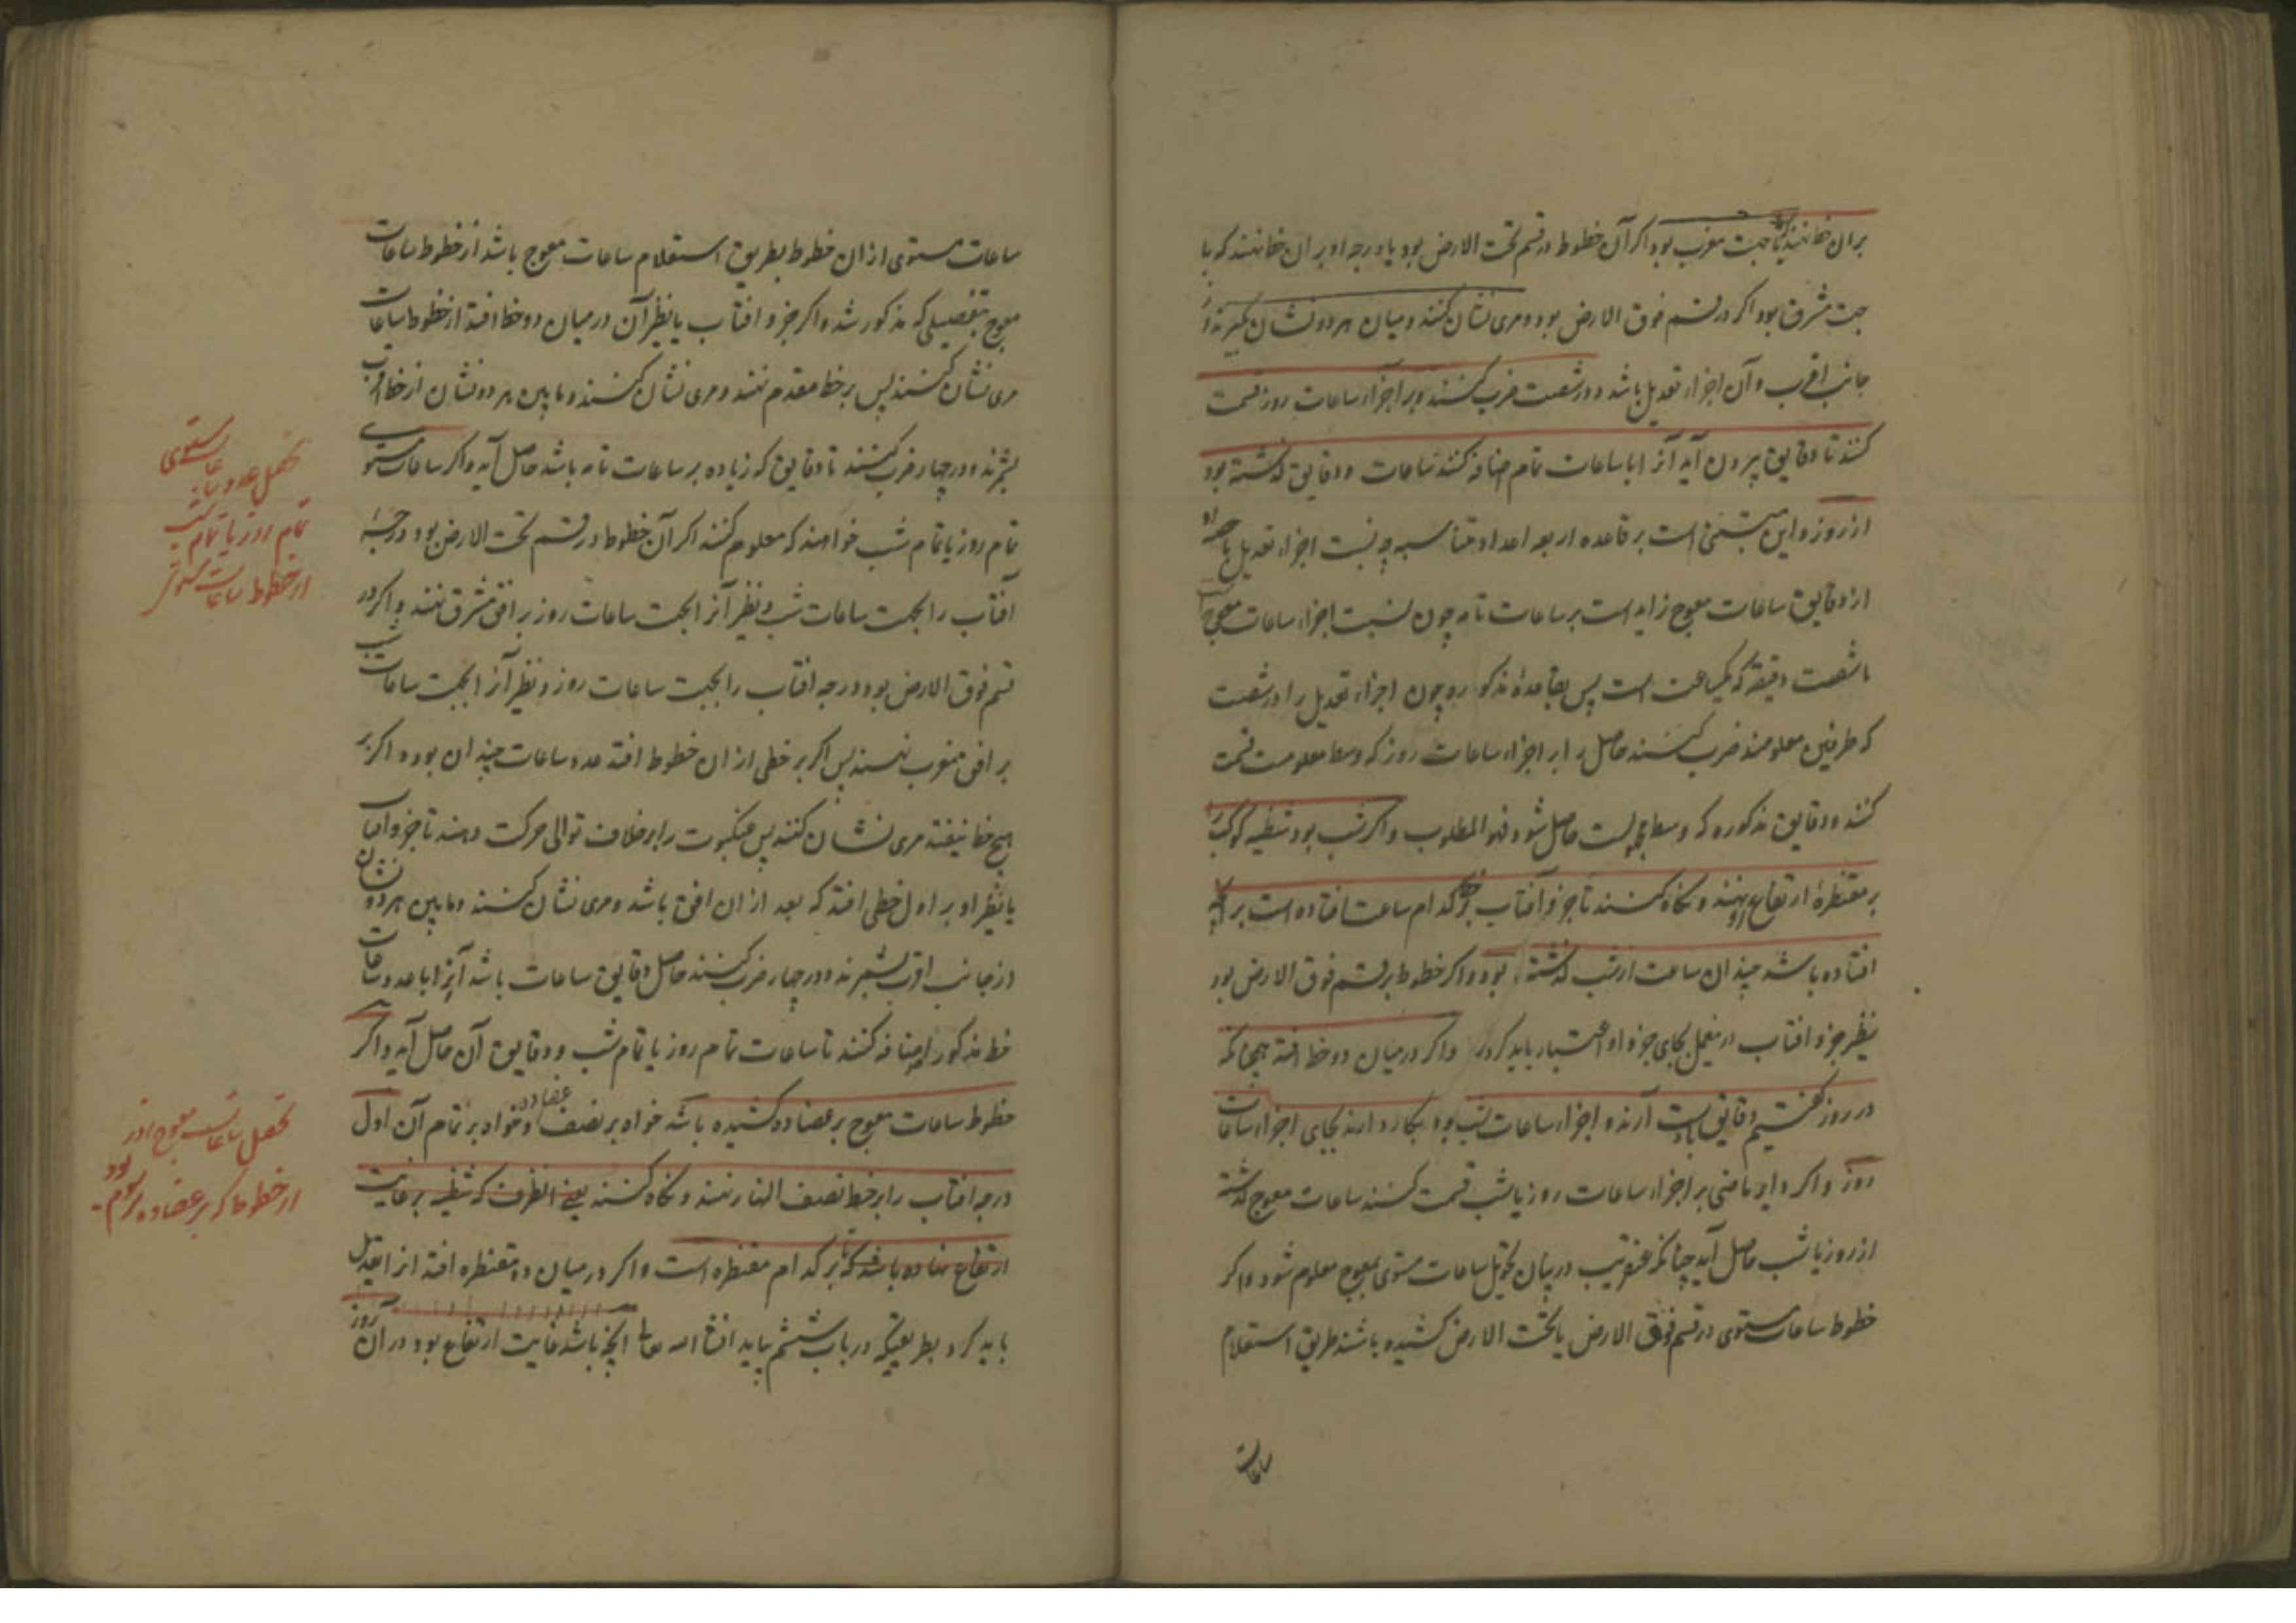 بران خط نهند که با جهت مغرب بود اکر آن خطوط در قسم تحت الارض بود یا درجه او بر ان خط نهند که با
جهت مشرق بود اکر در قسم فوق الارض بود و مری نشان کنند و میان هر دو نشان بکیرند از
جانب اقرب و آن اجزاء تعدیل باشد در شصت ضرب کنند و بر اجزاء ساعات روز قسمت
کنند تا دقایق بیرون آید آنرا با ساعات تمام اضافه کنند ساعات و دقایق کذشته بود
از روز و این مبتنی است بر قاعده اربعه اعداد متناسبه چه نسبت اجزاء تعدیل با حصه او
از دقایق ساعات معوج زاید است بر ساعات تامه چون نسبت اجزاء ساعات معوج است
با شصت دقیقه که یکساعت است پس بقاعدهٔ مذکوره چون اجزاء تعدیل را در شصت
که طرفین معلومند ضرب کنند حاصل را بر اجزاء ساعات روز که وسط معلومست قسمت
کنند و دقایق مذکوره که وسط مجهولست حاصل شود فهو المطلوب و اکر شب بود شظیه کوکب را
بر مقنطرهٔ ارتفاع او نهند و نکاه کنند تا جزو آفتاب بر خط کدام ساعت افتاده است بر آنچه
افتاده باشد چندان ساعت از شب کذشته بود و اکر خطوط بر قسم فوق الارض بود
نظیر جزو افتاب درین عمل بجای جزو او اعتبار باید کرد و اکر در میان دو خط افتد همچنانکه
در روز کفتیم دقایق بدست آرند و اجزاء ساعات شب بود بکار دارند بجای اجزاء ساعات
روز و اکر دایر ماضی بر اجزاء ساعات روز یا شب قسمت کنند ساعات معوج کذشته
از روز یا شب حاصل آید چنانکه عنقریب در بیان تحویل ساعات مستوی بمعوج معلوم شود و اکر
خطوط ساعات مستوی در قسم فوق الارض یا تحت الارض کشیده باشند طریق استعلام
ساعات
ساعات مستوی از ان خطوط بطریق استعلام ساعات معوج باشد از خطوط ساعات
معوج بتفصیلی که مذکور شد و اکر جزو افتاب یا نظیر آن در میان دو خط افتد از خطوط ساعات
مری نشان کنند پس بر خط مقدم نهند و مری نشان کنند و ما بین هر دو نشان از خط اقرب
بشمرند و در چهار ضرب کنند تا دقایق که زیاده بر ساعات تامه باشد حاصل آید و اکر ساعات مستوی
تمام روز یا تمام شب خواهند که معلوم کنند اکر آن خطوط در قسم تحت الارض بود درجهٔ
آفتاب را بجهت ساعات شب و نظیر آنرا بجهت ساعات روز بر افق مشرق نهند و اکر در
قسم فوق الارض بود درجه افتاب را بجهت ساعات روز و نظیر آنرا بجهت ساعات شب
بر افق مغرب نهند پس اکر بر خطی از ان خطوط افتد عدد ساعات چندان بود و اکر بر
هیچ خط نیفتد مری نشان کنند پس عنکبوت را بر خلاف توالی حرکت دهند تا جزو افتاب
یا نظیر او بر اول خطی افتد که بعد از ان افق باشد و مری نشان کنند و ما بین هر دو نشان
از جانب اقرب بشمرند و در چهار ضرب کنند حاصل دقایق ساعات باشد آنرا با عدد ساعات
خط مذکور اضافه کنند تا ساعات تمام روز یا تمام شب و دقایق آن حاصل آید و اکر
خطوط ساعات معوج بر عضاده کشیده باشد خواه بر نصف عضاده و خواه بر تمام آن اول
درجه افتاب را بر خط نصف النهار نهند و نکاه کنند یعنی انطرف که شظیه بر غایت
ارتفاع نهاده باشد که تا بر کدام مقنطره است و اکر در میان دو مقنطره افتد انرا تعدیل
باید کرد بطریقیکه در باب ششم بیاید انشا الله تعالی انچه باشد غایت ارتفاع بود در ان روز
تحصیل عدد ساعات مستوی
تمام روز یا تمام شب
از خطوط ساعات مستوی
تحصیل ساعات معوج از روز
از خطوط که بر عضاده مرسوم بود